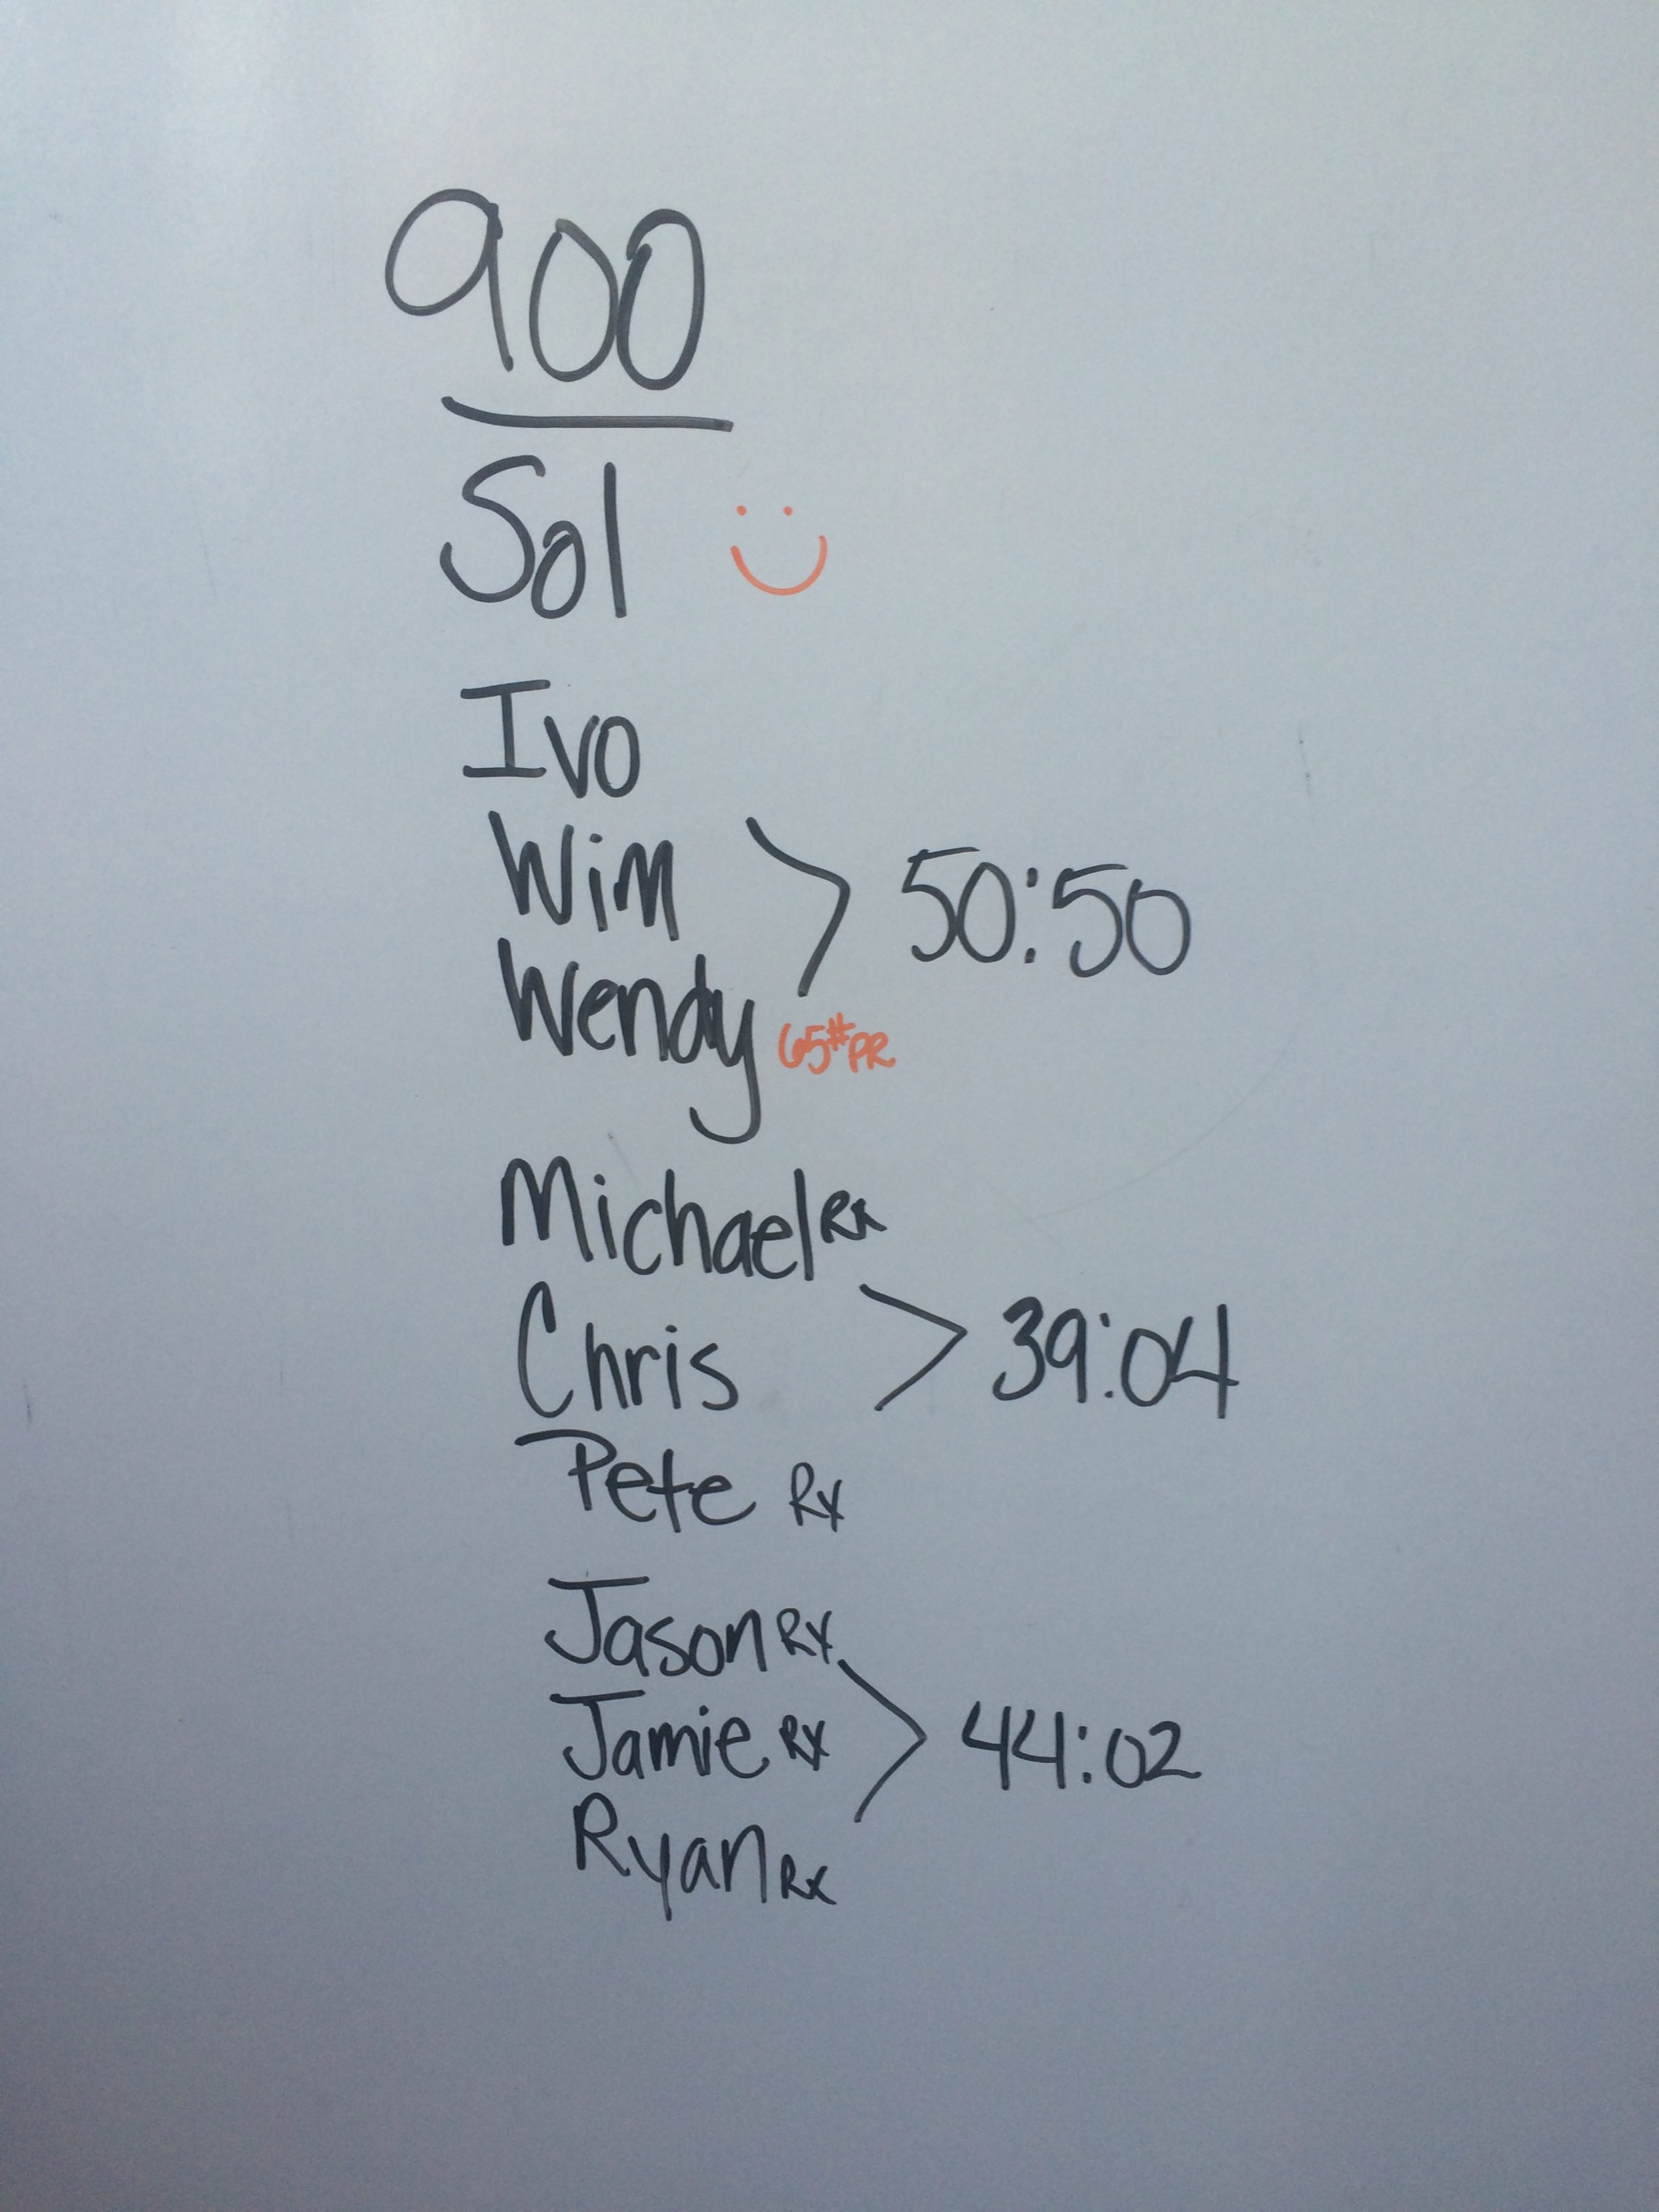 900
Sol
Ivo
Wim
50:50
Wendy 65# PR
Michael Rx
Chris
39:04
Pete Rx
Jason Rx
Jamie Rx
44:02
Ryan Rx